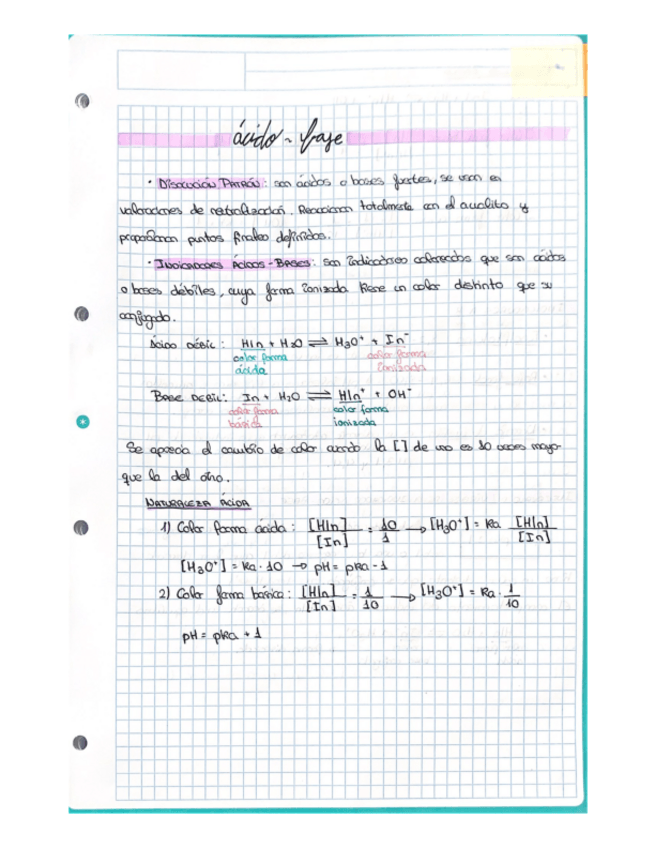 ácido - base
· Disolución Patrón: son ácidos o bases fuertes, se usan en
valoraciones de neutralización. Reaccionan totalmente con el analito y
proporcionan puntos finales definidos.
· Indicadores Ácidos - Bases: son indicadores coloreados que son ácidos
o bases débiles, cuya forma ionizada tiene un color distinto que su
conjugado.
Ácido débil: HIn + H2O ⇌ H3O⁺ + In⁻
color forma ácida
color forma ionizada
Base débil: In + H2O ⇌ HIn⁺ + OH⁻
color forma básica
color forma ionizada
Se aprecia el cambio de color cuando la [ ] de uno es 10 veces mayor
que la del otro.
Naturaleza ácida
1) Color forma ácida: [HIn]/[In] = 10/1 → [H3O⁺] = Ka [HIn]/[In]
[H3O⁺] = Ka · 10 → pH = pKa - 1
2) Color forma básica: [HIn]/[In] = 1/10 → [H3O⁺] = Ka · 1/10
pH = pKa + 1